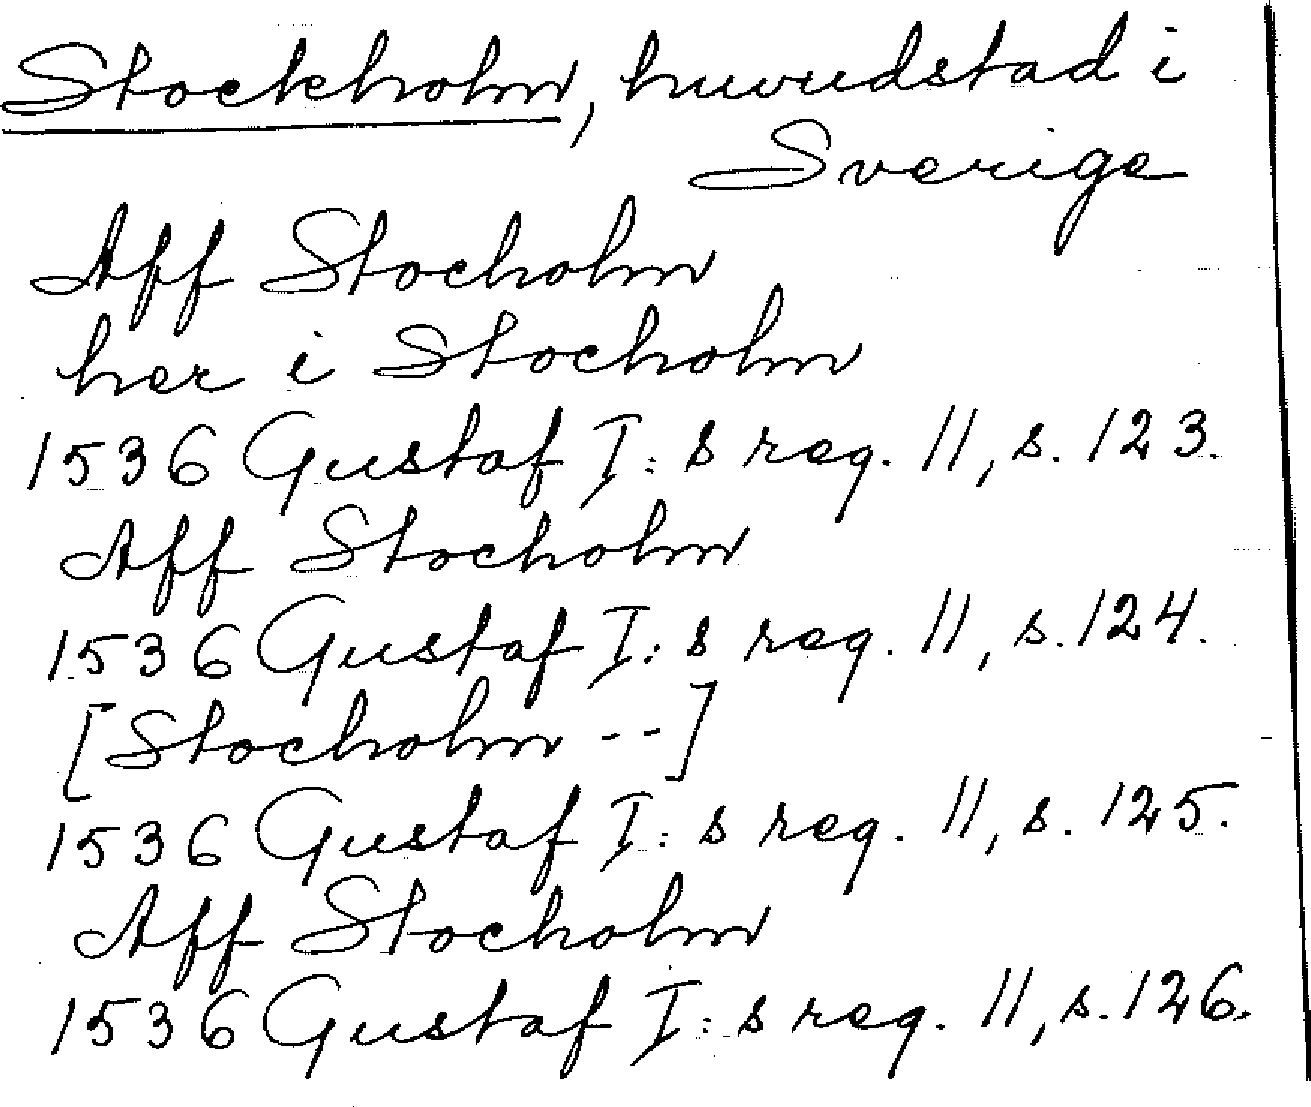 Stockholm, huvudstad i
Sverige
Aff Stocholm
her i Stocholm
1536 Gustaf I:s reg. 11, s. 123.
Aff Stocholm
1536 Gustaf I:s reg. 11, s. 124.
[Stocholm --]
1536 Gustaf I:s reg. 11, s. 125.
Aff Stocholm
1536 Gustaf I:s reg. 11, s. 126.